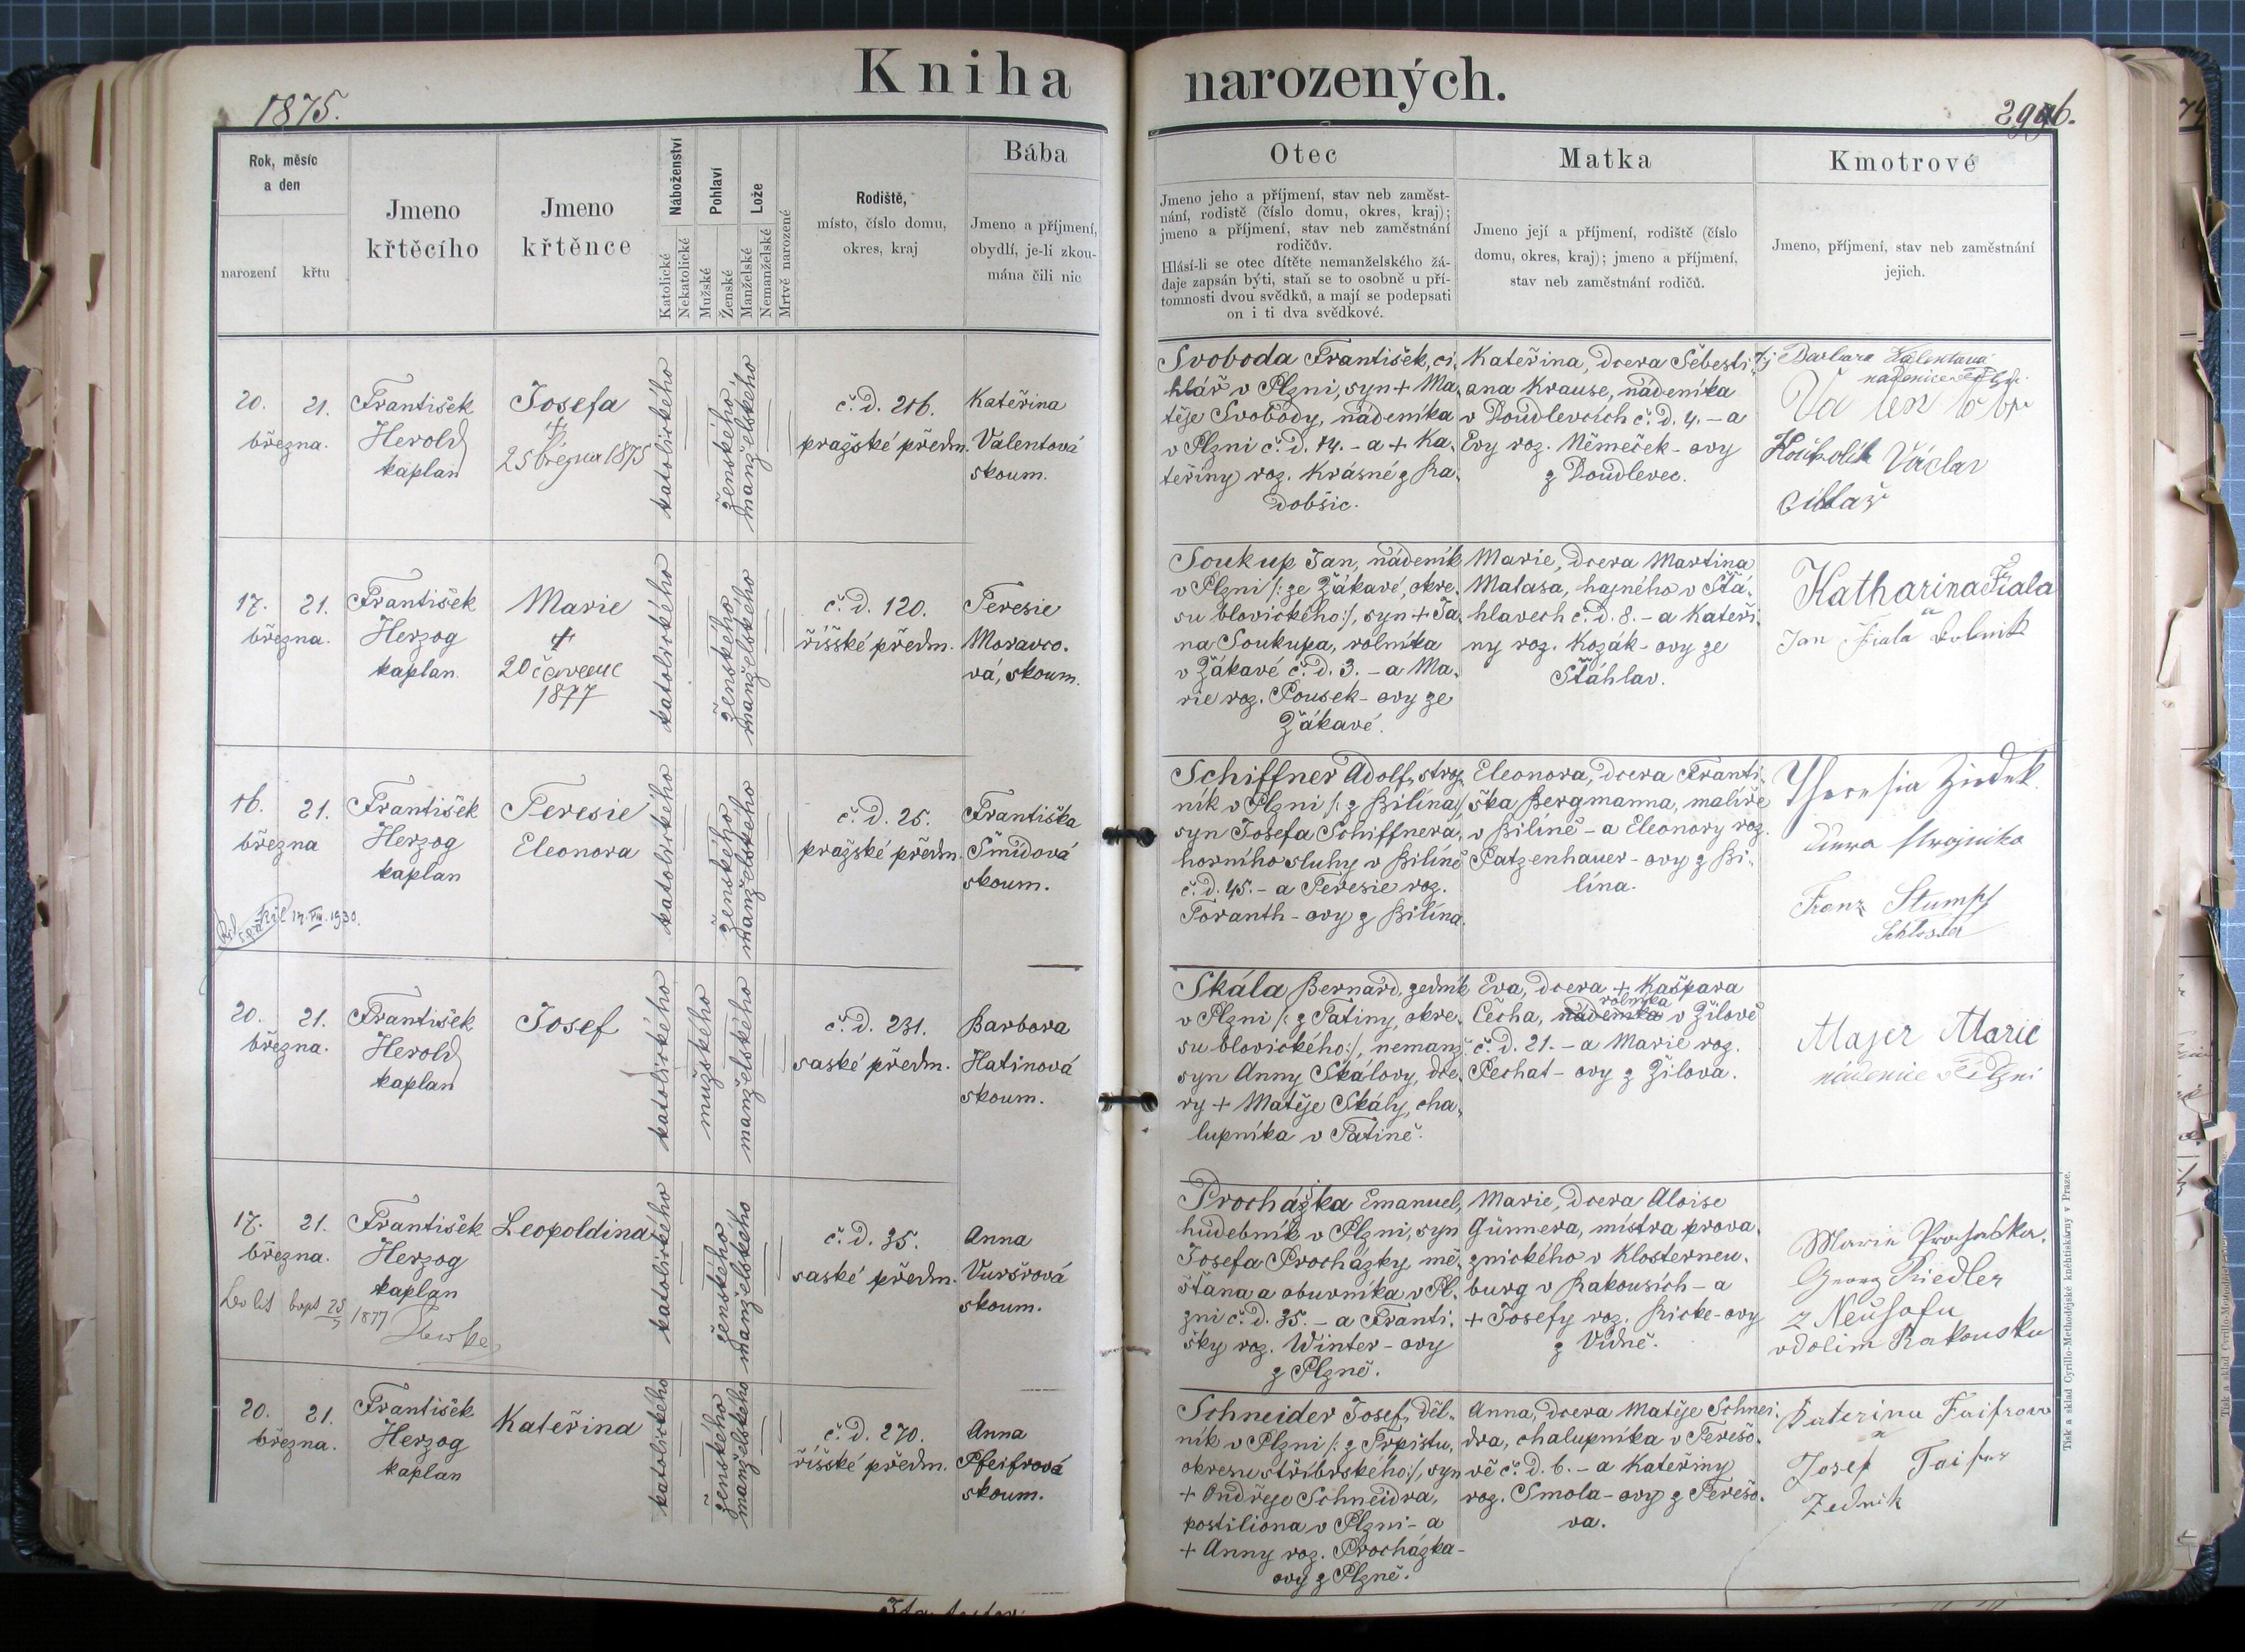 Kniha narozených.
1875.
Rok, měsíc
a den
narození
křtu
Jmeno
křtěcího
Jmeno
křtěnce
Náboženství
Katolické
Nekatolické
Pohlaví
Mužské
Ženské
Lože
Manželské
Nemanželské
Mrtvě narozené
Rodiště,
místo, číslo domu,
okres, kraj
Bába
Jmeno a příjmení,
obydlí, je-li zkou-
mána čili nic
Otec
Jmeno jeho a příjmení, stav neb zaměst-
nání, rodiště (číslo domu, okres, kraj);
jmeno a příjmení, stav neb zaměstnání
rodičův.
Hlásí-li se otec dítěte nemanželského žá-
daje zapsán býti, staň se to osobně u pří-
tomnosti dvou svědků, a mají se podepsati
on i ti dva svědkové.
Matka
Jmeno její a příjmení, rodiště (číslo
domu, okres, kraj); jmeno a příjmení,
stav neb zaměstnání rodičů.
Kmotrové
Jmeno, příjmení, stav neb zaměstnání
jejich.
20. 21.
března.
František
Herold
kaplan
Josefa
+
25 března 1875
katolického
ženského
manželského
č. d. 216.
pražské předm.
Kateřina
Valentová
skoum.
Svoboda František, ci-
hlář v Plzni, syn + Ma-
těje Svobody, nádeníka
v Plzni č. d. 14. - a + Ka-
teřiny roz. Krásné z Ra-
dobšic.
Kateřina, dcera Šebesti-
ana Krause, nádeníka
v Doudlevcích č. d. 4. - a
Evy roz. Němeček-ovy
z Doudlevec.
Barbara Valentová
Václav
17. 21.
března.
František
Herzog
kaplan.
Marie
+
20 července
1877
katolického
ženského
manželského
č. d. 120.
říšské předm.
Teresie
Moravco-
vá, skoum.
Soukup Jan, nádeník
v Plzni /: ze Žákavé, okre-
su blovického :/, syn + Ja-
na Soukupa, rolníka
v Žákavé č. d. 3. - a Ma-
rie roz. Pousek-ovy ze
Žákavé.
Marie, dcera Martina
Matasa, hajného v Šťá-
hlavech č. d. 8. - a Kateři-
ny roz. Kozák-ovy ze
Šťáhlav.
Katharina Fiala
a
Jan Fiala
16. 21.
března
František
Herzog
kaplan
Teresie
Eleonora
katolického
ženského
manželského
č. d. 25.
pražské předm.
Františka
Šmídová
skoum.
Schiffner Adolf, stroj-
ník v Plzni /: z Bílína :/
syn Josefa Schiffnera,
horního sluhy v Bílíně
č. d. 45. - a Teresie roz.
Toranth-ovy z Bílína.
Eleonora, dcera Franti-
ška Bergmanna, malíře
v Bílíně - a Eleonory roz.
Patzenhauer-ovy z Bí-
lína.
Theresia
Franz Stumpf
Schlosser
17. VIII. 1930.
20. 21.
března.
František
Herold
kaplan
Josef
katolického
mužského
manželského
č. d. 231.
saské předm.
Barbora
Hatinová
skoum.
Skála Bernard, zedník
v Plzni /: z Tatiny, okre-
su blovického :/, nemanž.
syn Anny Skálovy, dce-
ry + Matěje Skály, cha-
lupníka v Tatině.
Eva, dcera + Kašpara
rolníka
Čecha, nádeníka v Žilově
č. d. 21. - a Marie roz.
Pechat-ovy z Žilova.
Majer Marie
nádenice v Plzni
17. 21.
března.
František
Herzog
kaplan
Leopoldina
katolického
ženského
manželského
č. d. 35.
saské předm.
Anna
Vuršrová
skoum.
Procházka Emanuel,
hudebník v Plzni, syn
Josefa Procházky, mě-
šťana a obuvníka v Pl-
zni č. d. 35. - a Franti-
šky roz. Winter-ovy
z Plzně.
Marie, dcera Aloise
Günnera, mistra prova-
znického v Klosterneu-
burg v Rakousích - a
+ Josefy roz. Ricke-ovy
z Vídně.
Marie Prochaska.
Georg Riedler
z Neuhofu
v dolim Rakousku
20. 21.
března.
František
Herzog
kaplan
Kateřina
katolického
ženského
manželského
č. d. 270.
říšské předm.
Anna
Pfeifrová
skoum.
Schneider Josef, děl-
ník v Plzni /: z Trpistu,
okresu stříbrského :/, syn
+ Ondřeje Schneidra,
postiliona v Plzni - a
+ Anny roz. Procházka-
ovy z Plzně.
Anna, dcera Matěje Schnei-
dra, chalupníka v Terešo-
vě č. d. 6. - a Kateřiny
roz. Smola-ovy z Terešo-
va.
Katerina Faifrova
a
Josef Faifer
Zednik
Tisk a sklad Cyrillo-Methodějské kněhtiskárny v Praze.